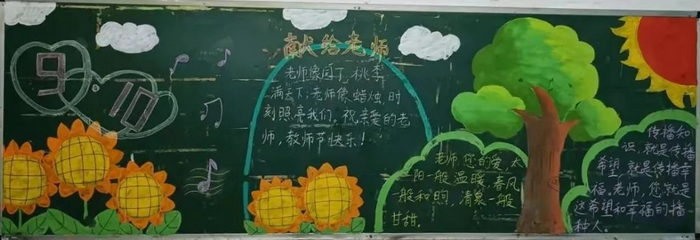 9.10
献给老师
老师像园丁,桃李
满天下;老师像蜡烛,时
刻照亮我们,祝亲爱的老
师,教师节快乐!
老师,您的爱,太
阳一般温暖,春风
一般和煦,清泉一般
甘甜。
传播知
识,就是传播
希望,就是传播幸
福。老师,您就是
这希望和幸福的播
种人。